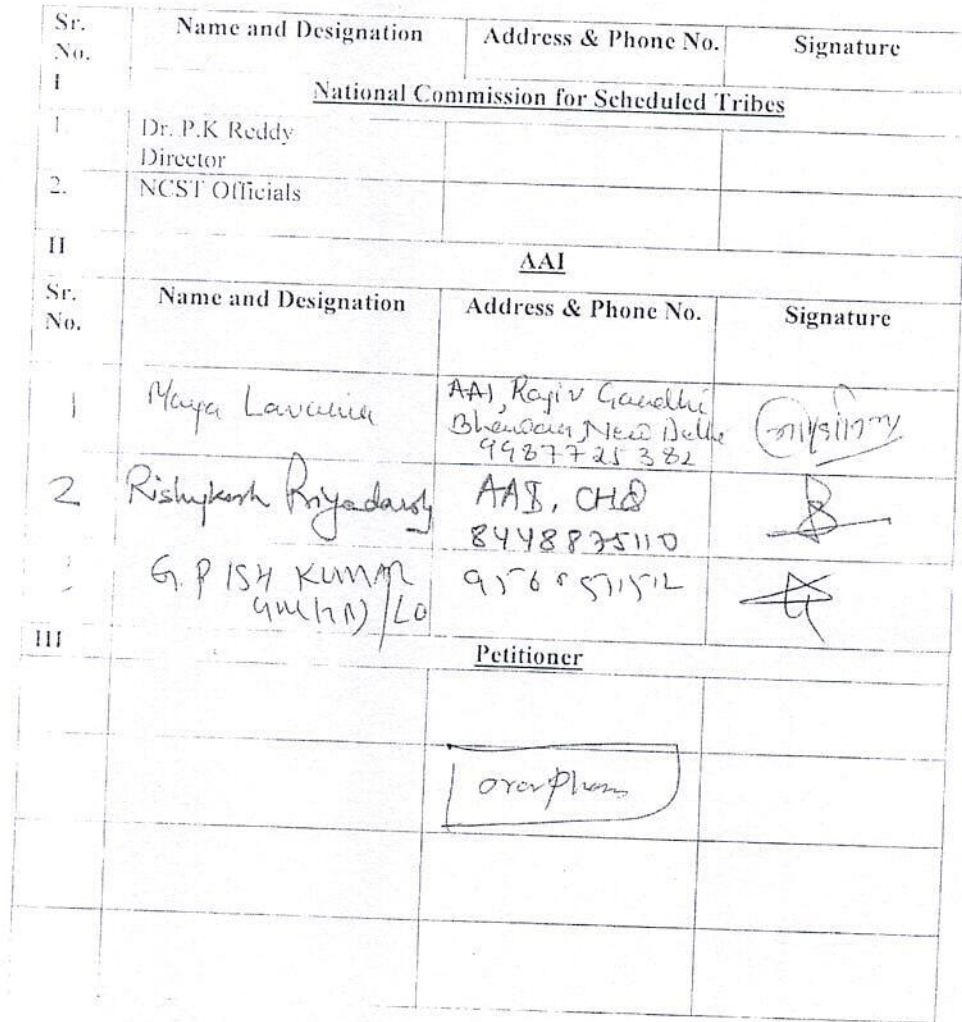 Sr. Name and Designation Address & Phone No. Signature
No.
I National Commission for Scheduled Tribes
1. Dr. P.K Reddy
Director
2. NCST Officials
II AAI
Sr. Name and Designation Address & Phone No. Signature
No.
1 Maya Lavania AAI, Rajiv Gandhi
Bhawan, New Delhi
9987725382
2 Rishykesh Priyadarshy AAI, CHQ
8448835110
KUMAR
III Petitioner
over phone